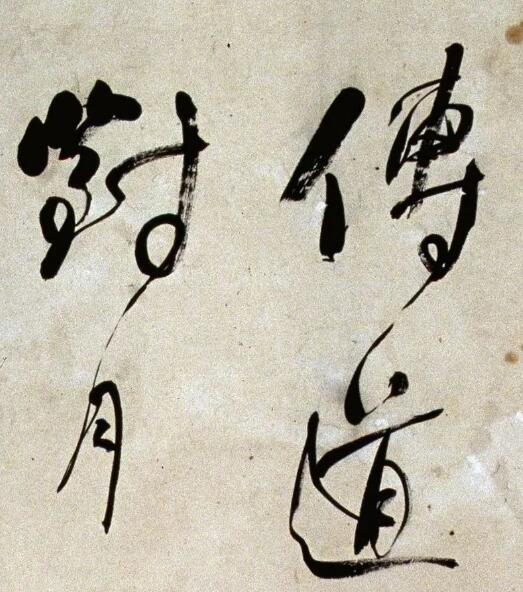 傳道
對月